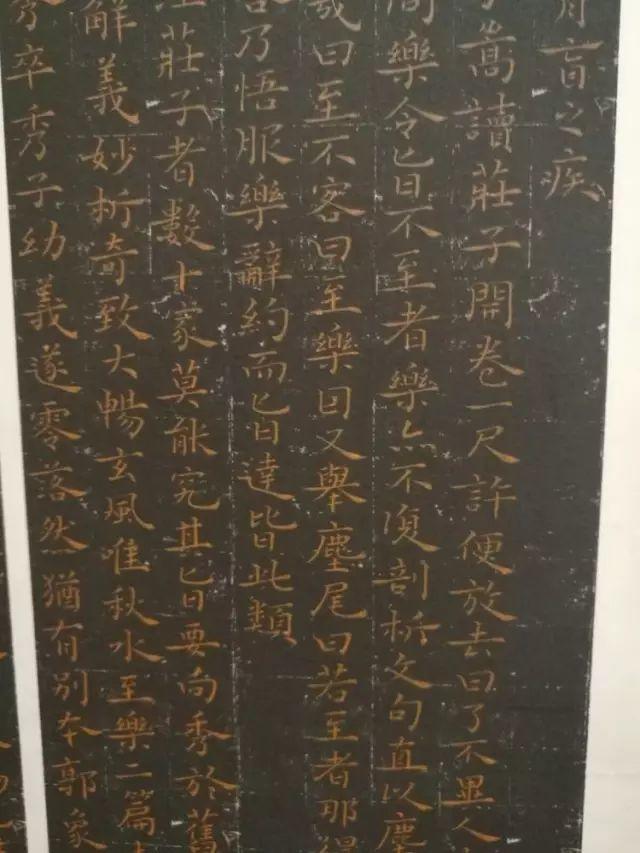 肓之疾
子嵩讀莊子開卷一尺許便放去曰了不異人
問樂令旨不至者樂亦不復剖析文句直以麈
哉曰至不客曰至樂因又舉麈尾曰若至者那得
客乃悟服樂辭約而旨達皆此類
注莊子者數十家莫能究其旨要向秀於舊
解義妙析奇致大暢玄風唯秋水至樂二篇
秀卒秀子幼義遂零落然猶有別本郭象